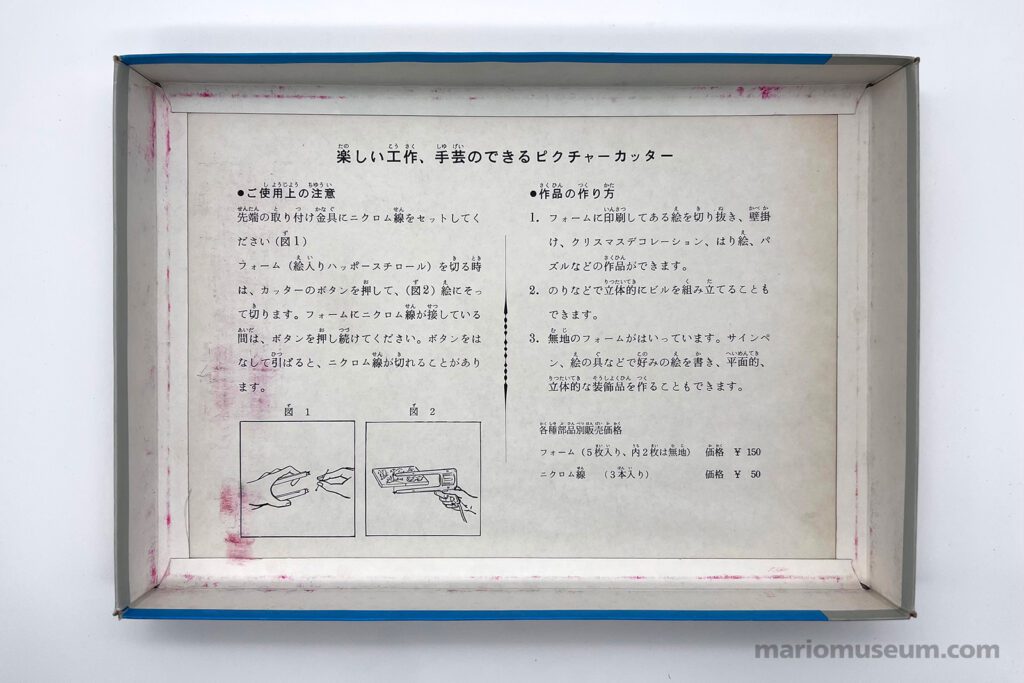 楽しい工作、手芸のできるピクチャーカッター
●ご使用上の注意
先端の取り付け金具にニクロム線をセットしてく
ださい(図1)
フォーム(絵入りハッポースチロール)を切る時
は、カッターのボタンを押して、(図2)絵にそっ
て切ります。フォームにニクロム線が接している
間は、ボタンを押し続けてください。ボタンをは
なして引ぱると、ニクロム線が切れることがあり
ます。
図 1
図 2
●作品の作り方
1. フォームに印刷してある絵を切り抜き、壁掛
け、クリスマスデコレーション、はり絵、パ
ズルなどの作品ができます。
2. のりなどで立体的にビルを組み立てることも
できます。
3. 無地のフォームがはいっています。サインペ
ン、絵の具などで好みの絵を書き、平面的、
立体的な装飾品を作ることもできます。
各種部品別販売価格
フォーム(5枚入り、内2枚は無地) 価格 ¥ 150
ニクロム線 (3本入り) 価格 ¥ 50
mariomuseum.com